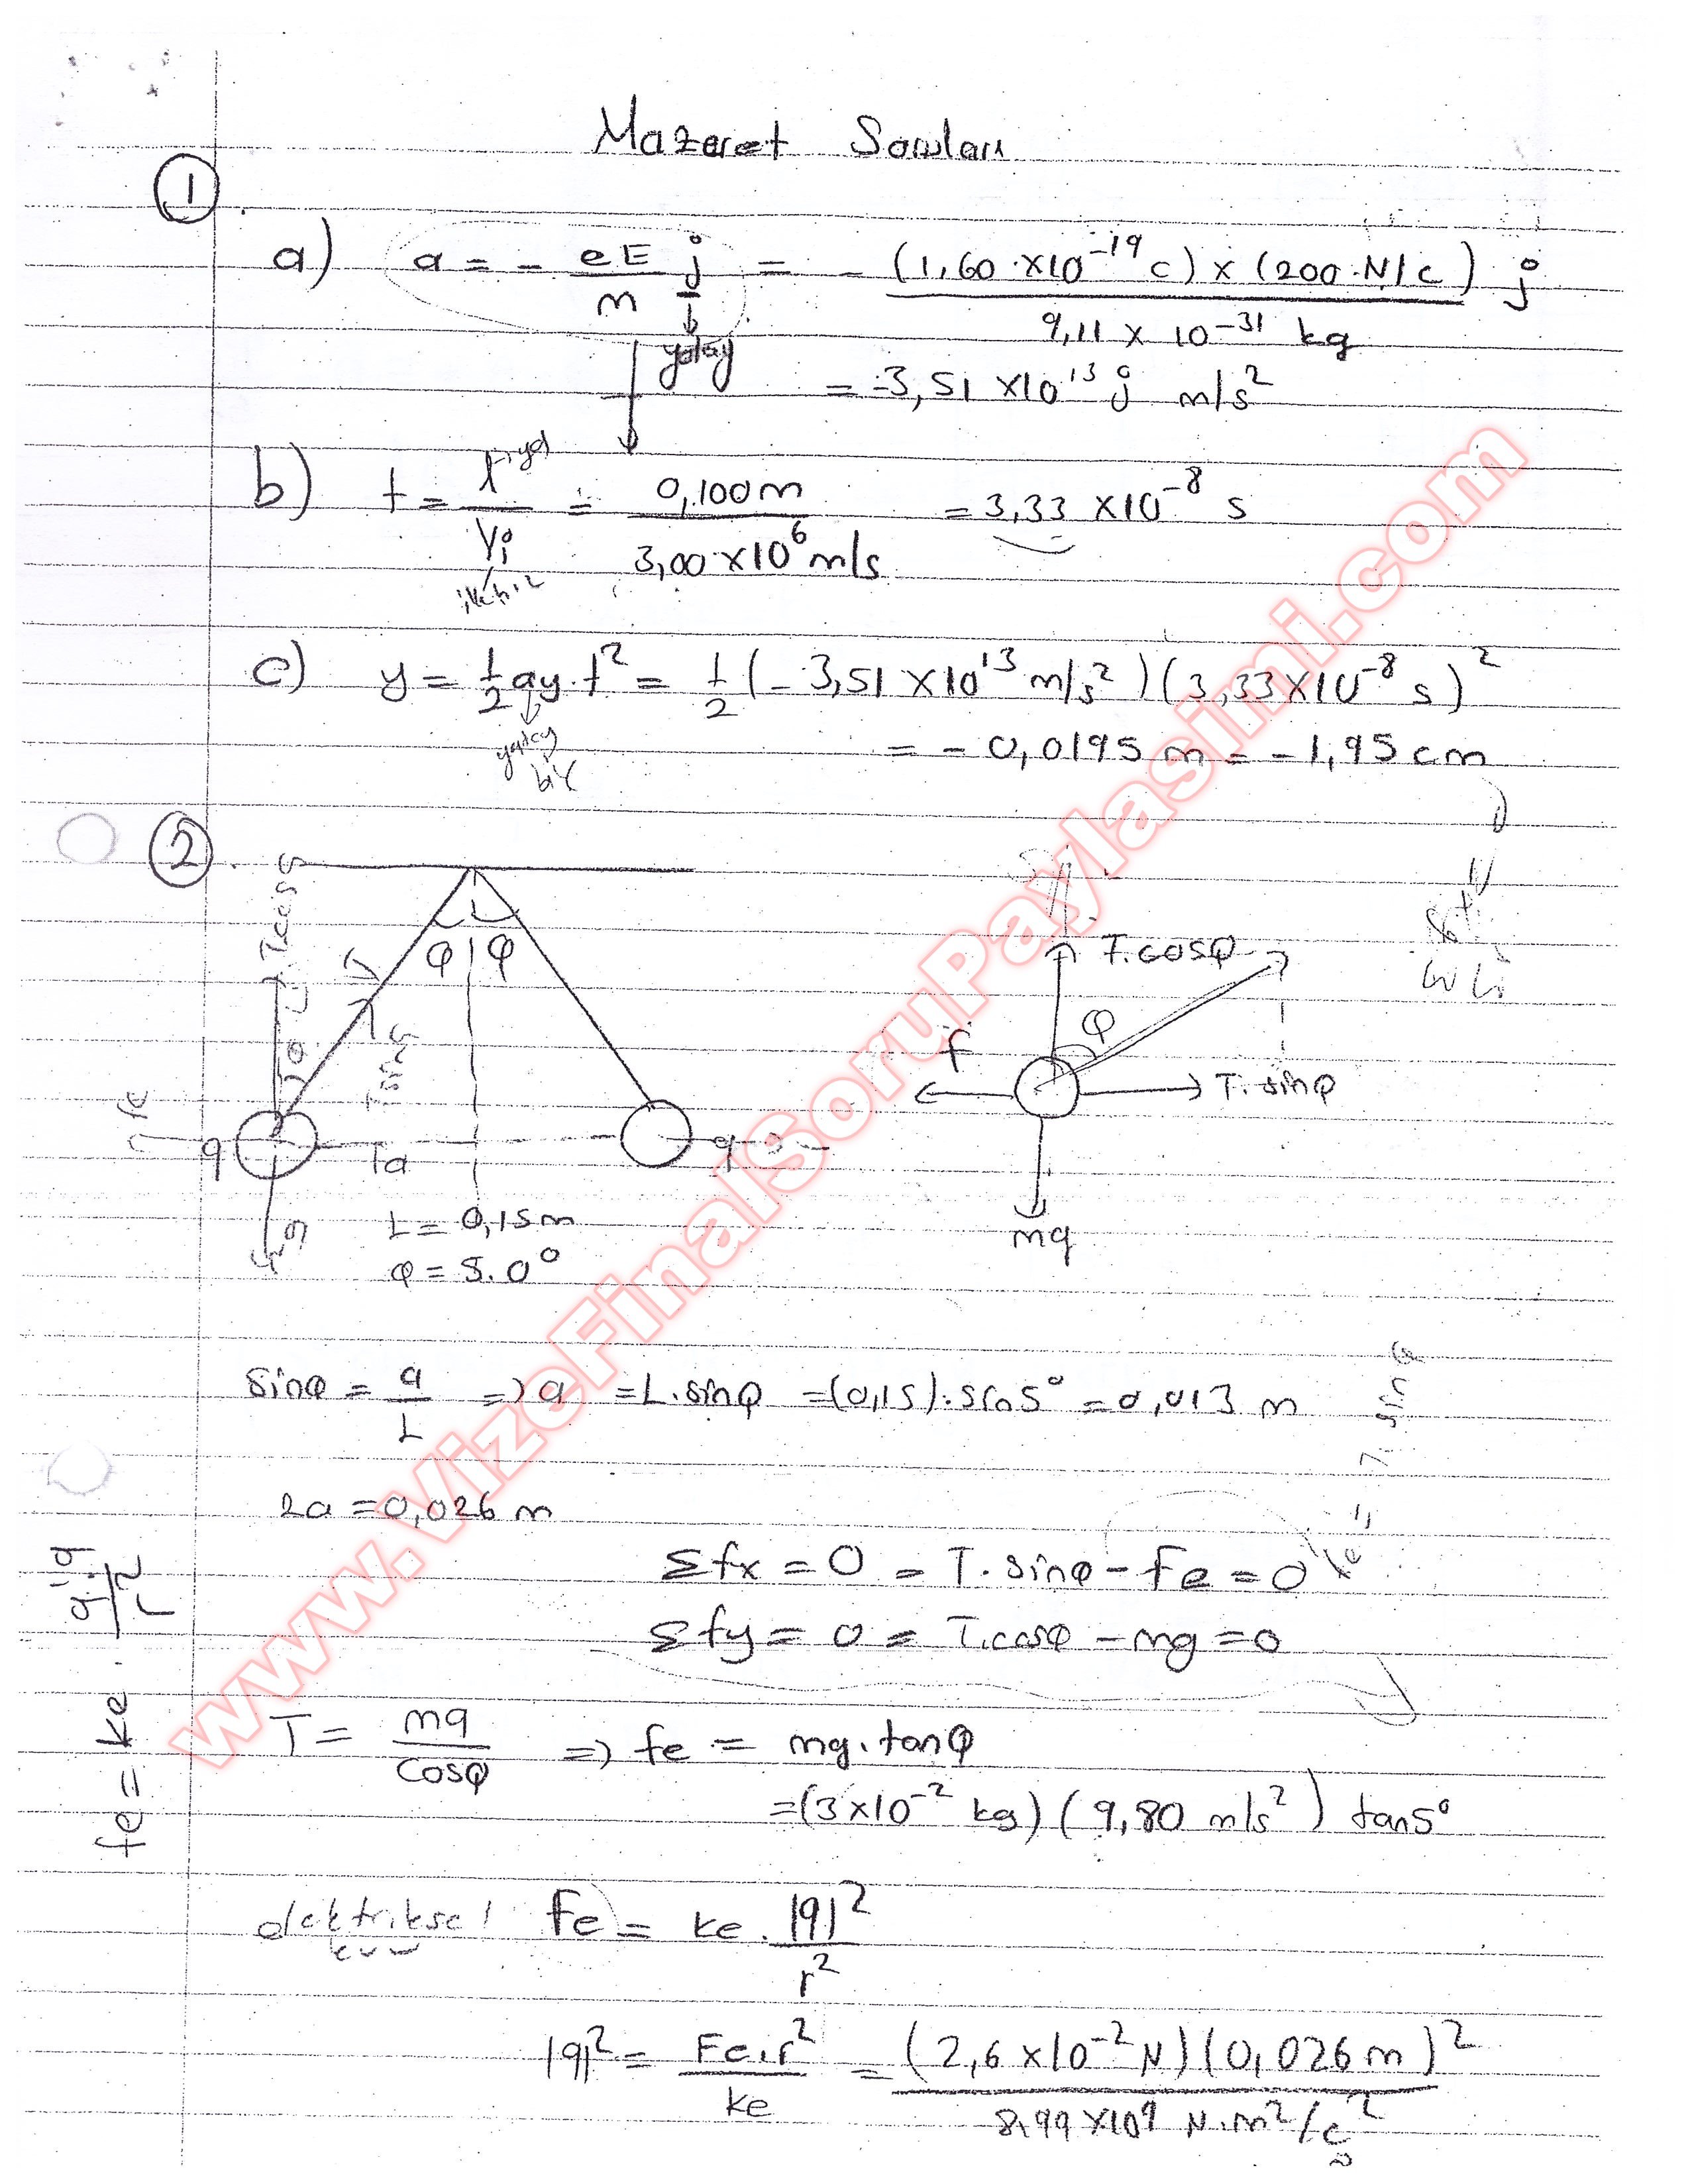 Mazeret Soruları
1
a) a = - eE/m j = - (1,60 x10^-19 C) x (200 N/C) / 9,11 x 10^-31 kg j
yatay
= -3,51 x10^13 j m/s^2
b) t = l/Vi = 0,100m / 3,00 x10^6 m/s = 3,33 x10^-8 s
yol
ilk hız
c) y = 1/2 ay.t^2 = 1/2 (-3,51 x10^13 m/s^2)(3,33x10^-8 s)^2
= -0,0195 m = -1,95 cm
yatay
2
φ φ
T.cosφ
φ
f
T.sinφ
q
q
mg
L = 0,15m
φ = 5.0°
sinφ = a/L => a = L.sinφ = (0,15).sin5° = 0,013 m
2a = 0,026 m
Σfx = 0 = T.sinφ - Fe = 0
Σfy = 0 = T.cosφ - mg = 0
T = mg/cosφ => fe = mg.tanφ
= (3x10^-2 kg) (9,80 m/s^2) tan5°
fe = ke . q.q/r^2
elektriksel Fe = ke . |q|^2/r^2
|q|^2 = Fe.r^2/ke = (2,6 x10^-2 N)(0,026m)^2 / 8,99 x10^9 N.m^2/C^2
www.VizeFinalSoruPaylasimi.com